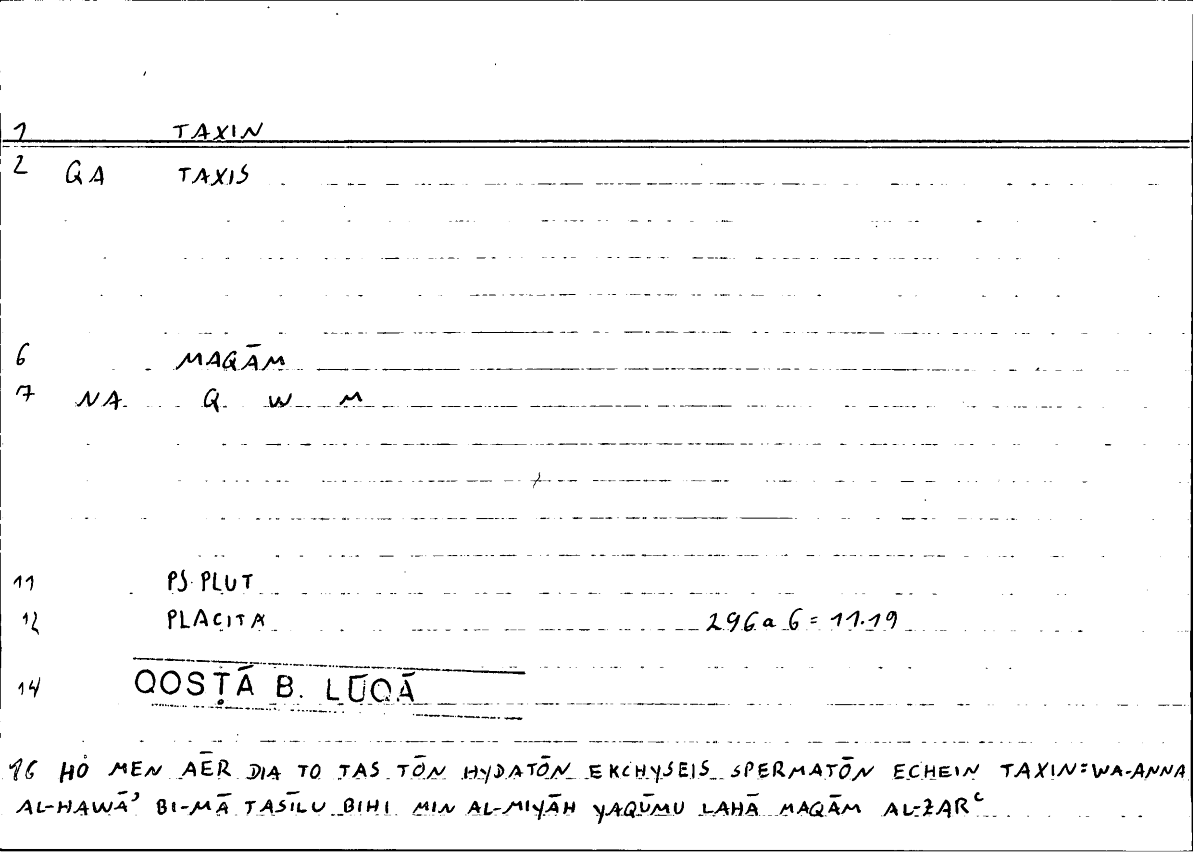 1 TAXIN
2 QA TAXIS
6 MAQĀM
7 NA Q W M
11 PS. PLUT
12 PLACITA 296a 6 = 11.19
14 QOSṬĀ B. LŪQĀ
16 HO MEN AĒR DIA TO TAS TŌN HYDATŌN EKCHYSEIS SPERMATŌN ECHEIN TAXIN:WA-ANNA
AL-HAWĀʾ BI-MĀ TASĪLU BIHI MIN AL-MIYĀH YAQŪMU LAHĀ MAQĀM AL-ZARʿ